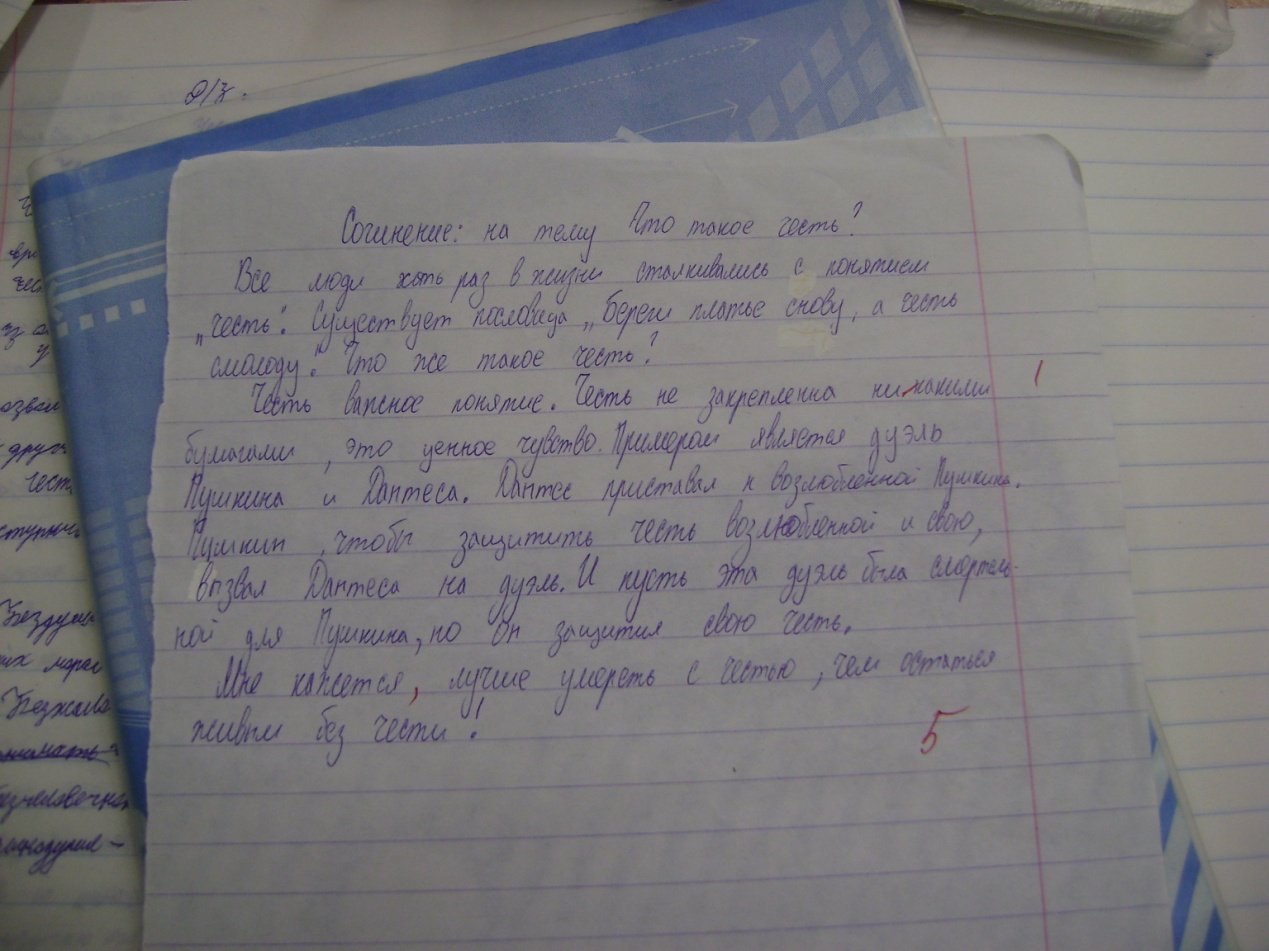 Д/З.
Сочинение: на тему Что такое честь?
Все люди хоть раз в жизни сталкивались с понятием
„честь". Существует пословица „береги платье снову, а честь
смолоду". Что же такое честь?
Честь важное понятие. Честь не закрепленна ни какими
бумагами, это ценное чувство. Примером является дуэль
Пушкина и Дантеса. Дантес приставал к возлюбленной Пушкина.
Пушкин, чтобы защитить честь возлюбленной и свою,
вызвал Дантеса на дуэль. И пусть эта дуэль была смертель-
ной для Пушкина, но он защитил свою честь.
Мне кажется, лучше умереть с честью, чем остаться
живым без чести!
5